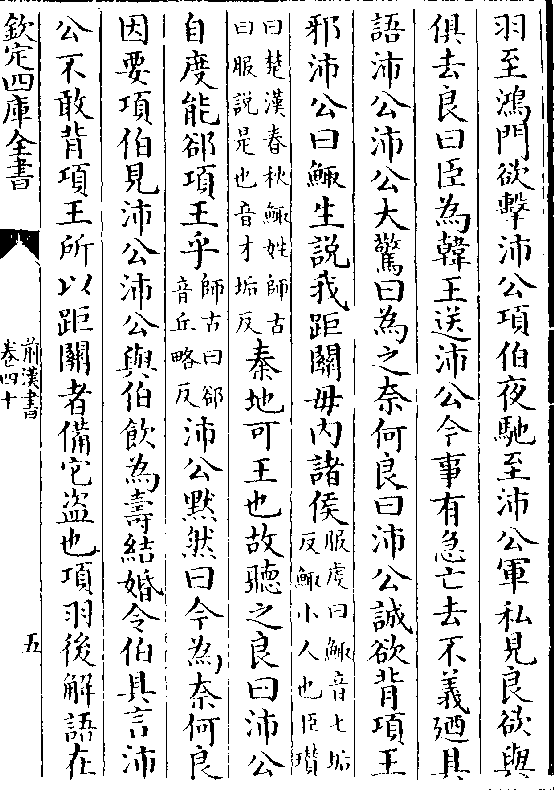 羽至鴻門欲擊沛公項伯夜馳至沛公軍私見良欲與
俱去良曰臣為韓王送沛公今事有急亡去不義廼具
語沛公沛公大驚曰為之奈何良曰沛公誠欲背項王
邪沛公曰鯫生說我距關毋内諸侯服虔曰鯫音七垢反鯫小人也臣瓚
曰楚漢春秋鯫姓師古曰服說是也音才垢反秦地可王也故聽之良曰沛公
自度能郤項王乎師古曰郤音丘略反沛公黙然曰今為奈何良
因要項伯見沛公沛公與伯飲為壽結婚令伯具言沛
公不敢背項王所以距關者備它盗也項羽後解語在
欽定四庫全書
前漢書
卷四十
五